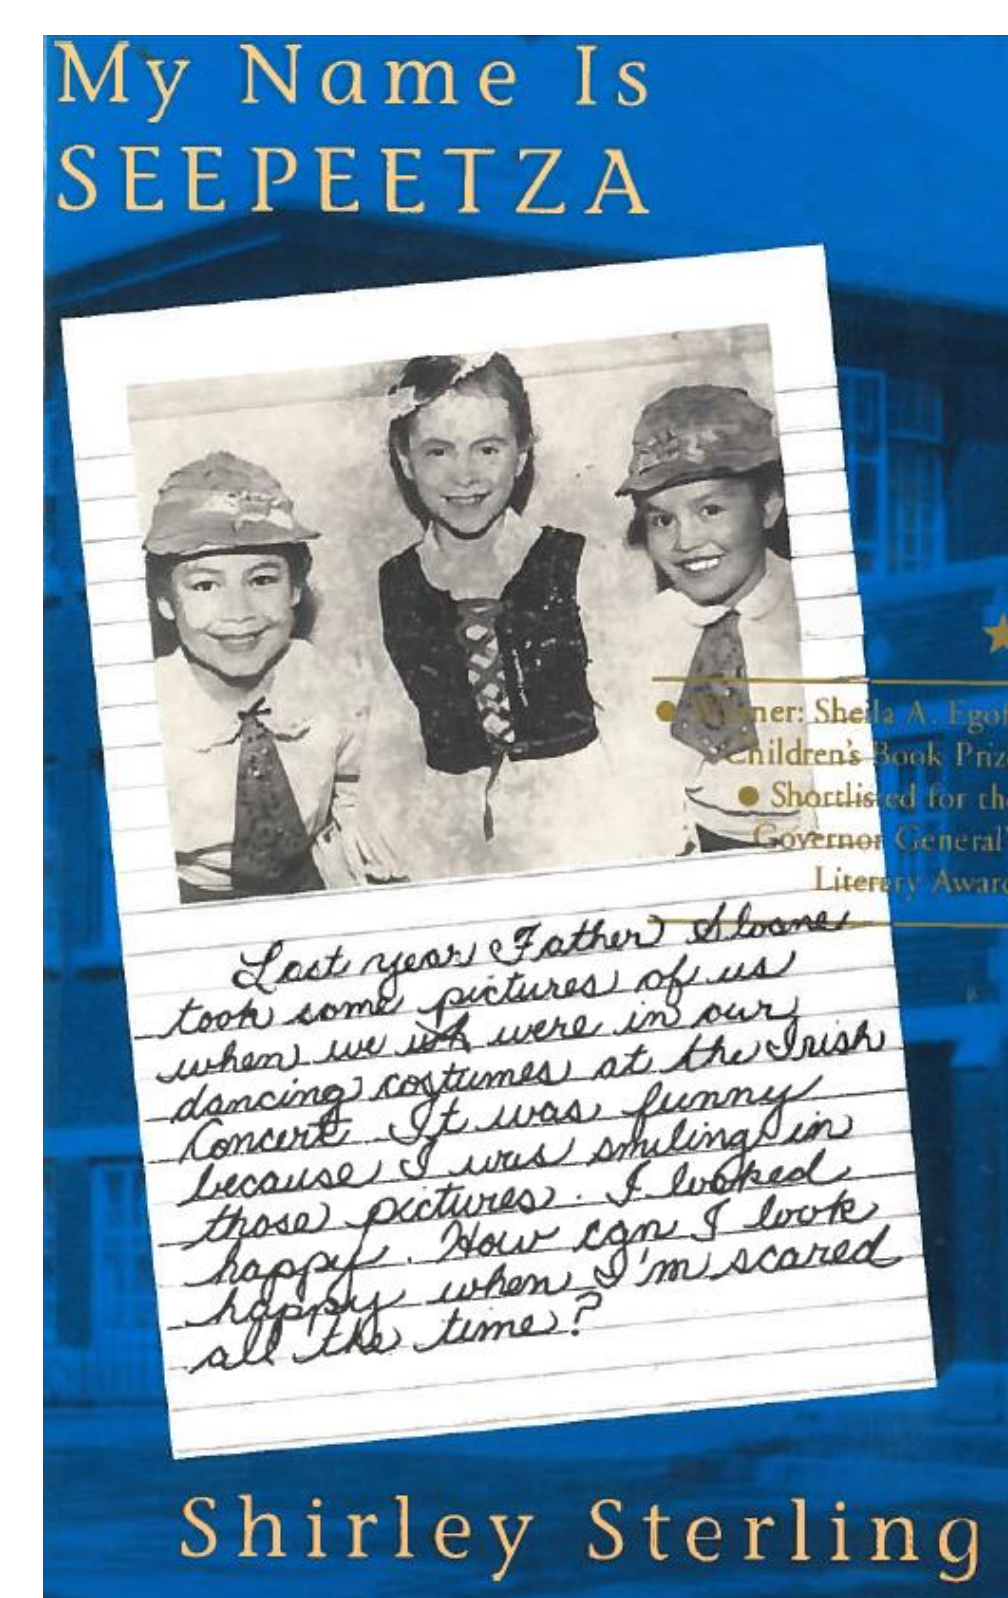 My Name Is
SEEPEETZA
Winner: Sheila A. Egof
Children's Book Priz
Shortlisted for th
Governor General'
Literary Awar
Last year Father Sloane
took some pictures of us
when we were in our
dancing costumes at the Irish
Concert. It was funny
because I was smiling in
those pictures. I looked
happy. How can I look
happy when I'm scared
all the time?
Shirley Sterling